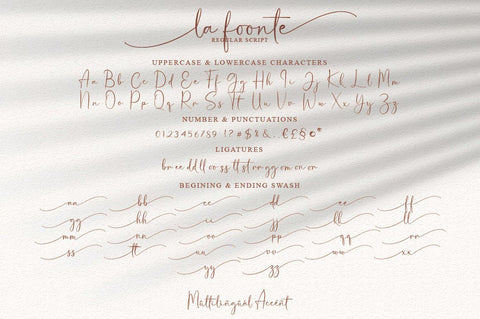 la foonte
REGULAR SCRIPT
UPPERCASE & LOWERCASE CHARACTERS
Aa Bb Cc Dd Ee Ff Gg Hh Ii Jj Kk Ll Mm
Nn Oo Pp Qq Rr Ss Tt Uu Vv Ww Xx Yy Zz
NUMBER & PUNCTUATIONS
0123456789 !?#$%&
LIGATURES
br ee dd ll oo ss tt st rr gg om on or
BEGINING & ENDING SWASH
aa bb cc dd ee ff
gg hh ii jj ll ll
mm nn oo pp qq rr
ss tt uu vv ww xx
yy zz
Multilingual Accent